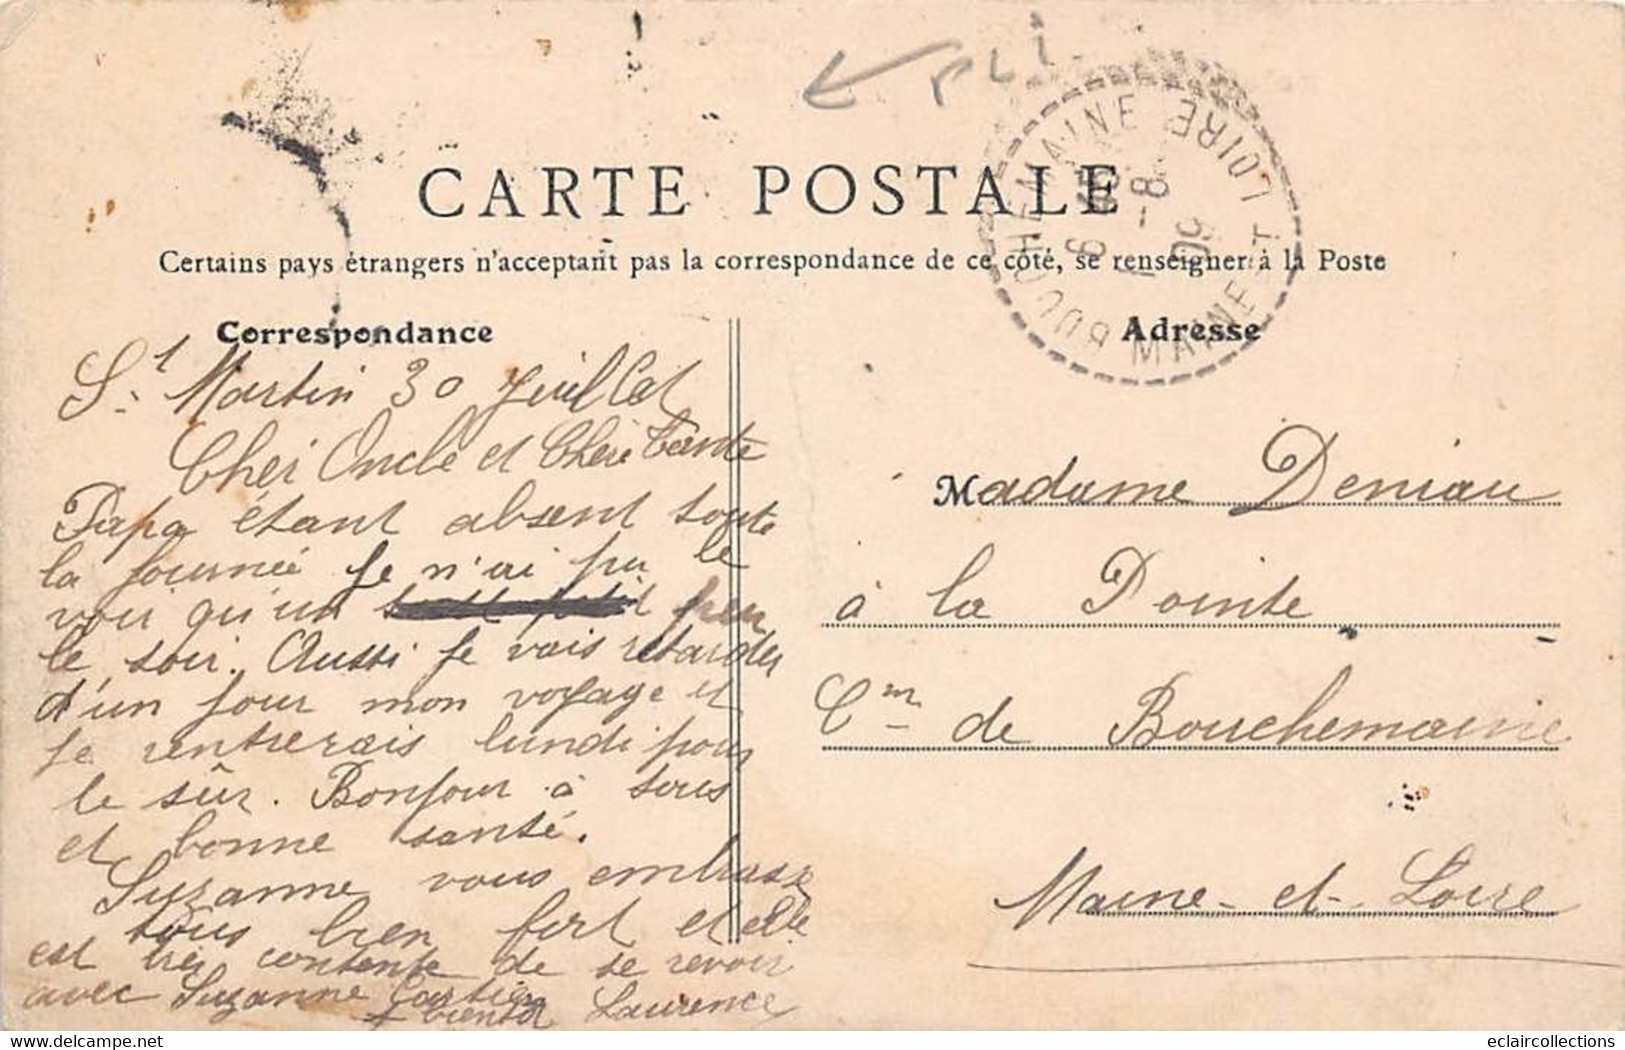 PLI
CARTE POSTALE
Certains pays étrangers n'acceptant pas la correspondance de ce côté, se renseigner à la Poste
BOUCHEMAINE MAINE ET LOIRE
1-8
09
Correspondance
St Martin 30 juillet
Cher Oncle et Chère Tante
Papa étant absent toute
la journée je n'ai pu le
voir qu'un peu
le soir. Aussi je vais retarder
d'un jour mon voyage et
je rentrerais lundi pour
le sûr. Bonjour à tous
et bonne santé.
Suzanne vous embrasse
tous bien fort et elle
est très contente de se revoir
avec Suzanne Cartier
à bientôt Laurence
Adresse
Madame Deniau
à la Pointe
Cm de Bouchemaine
Maine-et-Loire
eclaircollections